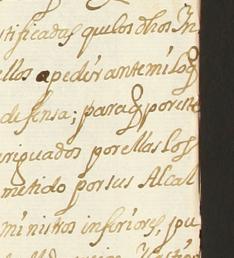 tificadas que los dhos In
ellos a pedir ante mi lo q
defensa; para q por este
eriguados por ellas los
metido por sus Alcal
ministros inferiores, pu